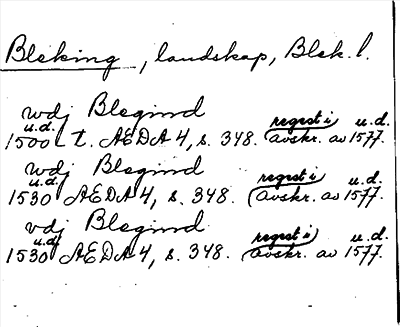 Bleking, landskap, Blek. l.
wdj Blegind
u.d. regest i u.d.
1500 t. AEDA 4, s. 348. (avskr. av 1577.
wdj Blegind
u.d. regest i u.d.
1530 AEDA 4, s. 348. (avskr. av 1577.
vdj Blegind
u.d. regest i u.d.
1530 AEDA 4, s. 348. (avskr. av 1577.